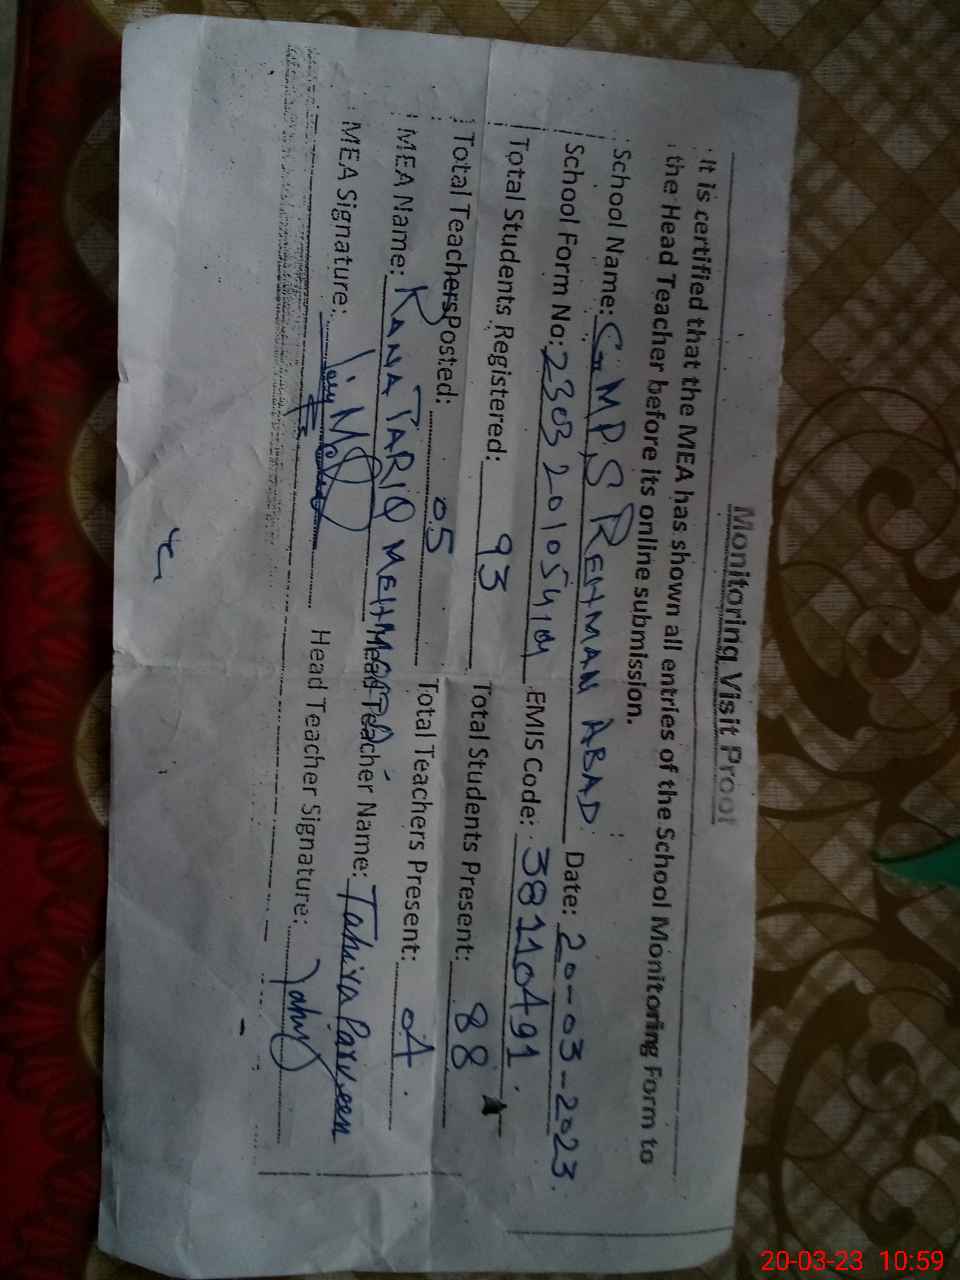 Monitoring Visit Proof
It is certified that the MEA has shown all entries of the School Monitoring Form to
the Head Teacher before its online submission.
School Name: GMPS REHMAN ABAD Date: 20-03-2023
School Form No: EMIS Code: 38110491
Total Students Registered: 93 Total Students Present: 88
Total Teachers Posted: 05 Total Teachers Present: 04
MEA Name: RANA TARIQ MEHMOOD Head Teacher Name: Tahira Parveen
MEA Signature: Head Teacher Signature:
20-03-23 10:59